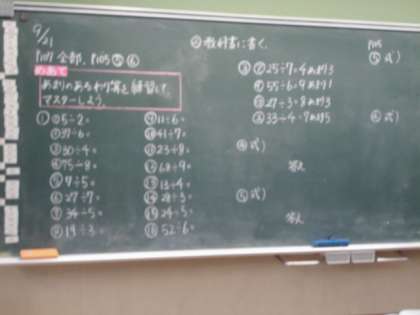 9/21
P107 全部、P105 ⑤ ⑥
めあて
あまりのあるわり算を練習して、
マスターしよう。
① ㋐5÷2=
37÷6=
③30÷4=
④75÷8=
⑤9÷5=
⑥27÷7=
⑦34÷5=
⑧19÷3=
11÷6=
41÷7=
23÷8=
68÷9=
13÷4=
29÷3=
24÷5=
52÷6=
②教科書に書く。
③ 25÷7=4あまり3
55÷6=9あまり1
27÷3=8あまり3
33÷4=7あまり5
④ 式)
答え
⑤ 式)
答え
P105
⑤ 式)
⑥ 式)